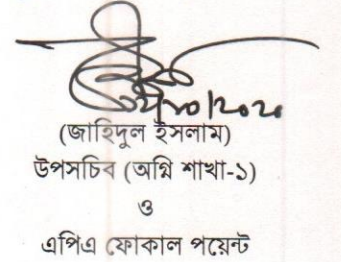 (জাহিদুল ইসলাম)
উপসচিব (অগ্নি শাখা-১)
ও
এপিএ ফোকাল পয়েন্ট